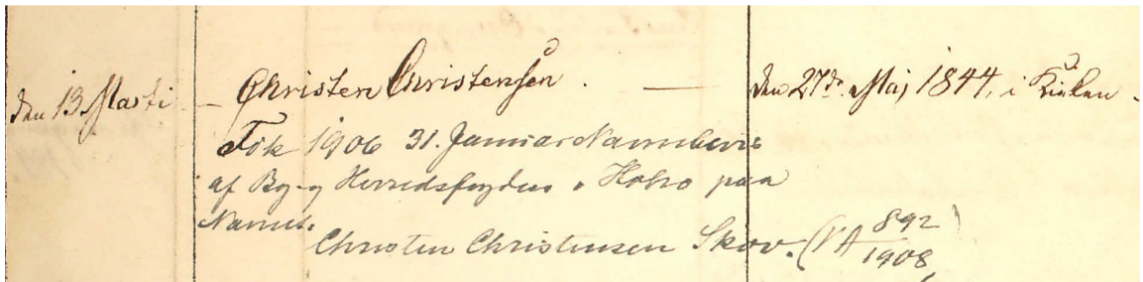 den 13 Marti — Christen Christensen. — den 27de Maj 1844, i Kirken
Fik 1906 31. Januar Navnebevis
af By- og Herredsfogden i Hobro paa
Navnet
Christen Christensen Skov. (VA 892/1908)